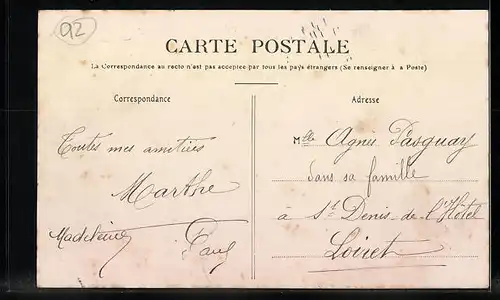 92
CARTE POSTALE
La Correspondance au recto n'est pas acceptée par tous les pays étrangers (Se renseigner à la Poste)
Correspondance
Toutes mes amitiés
Marthe
Madeleine Paul
Adresse
Mlle Agnès Pasquay
dans sa famille
à St Denis-de-l'Hôtel
Loiret